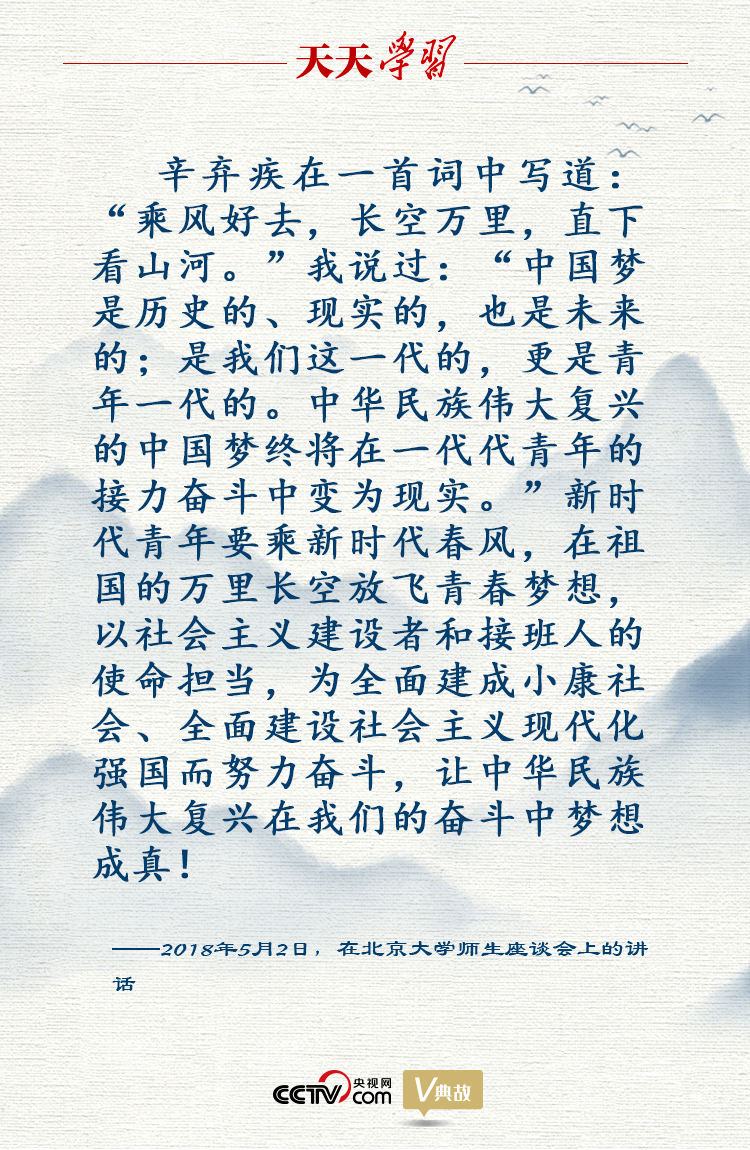 天天學習
辛弃疾在一首词中写道：
“乘风好去，长空万里，直下
看山河。”我说过：“中国梦
是历史的、现实的，也是未来
的；是我们这一代的，更是青
年一代的。中华民族伟大复兴
的中国梦终将在一代代青年的
接力奋斗中变为现实。”新时
代青年要乘新时代春风，在祖
国的万里长空放飞青春梦想，
以社会主义建设者和接班人的
使命担当，为全面建成小康社
会、全面建设社会主义现代化
强国而努力奋斗，让中华民族
伟大复兴在我们的奋斗中梦想
成真！
——2018年5月2日，在北京大学师生座谈会上的讲
话
CCTV央视网.com V典故